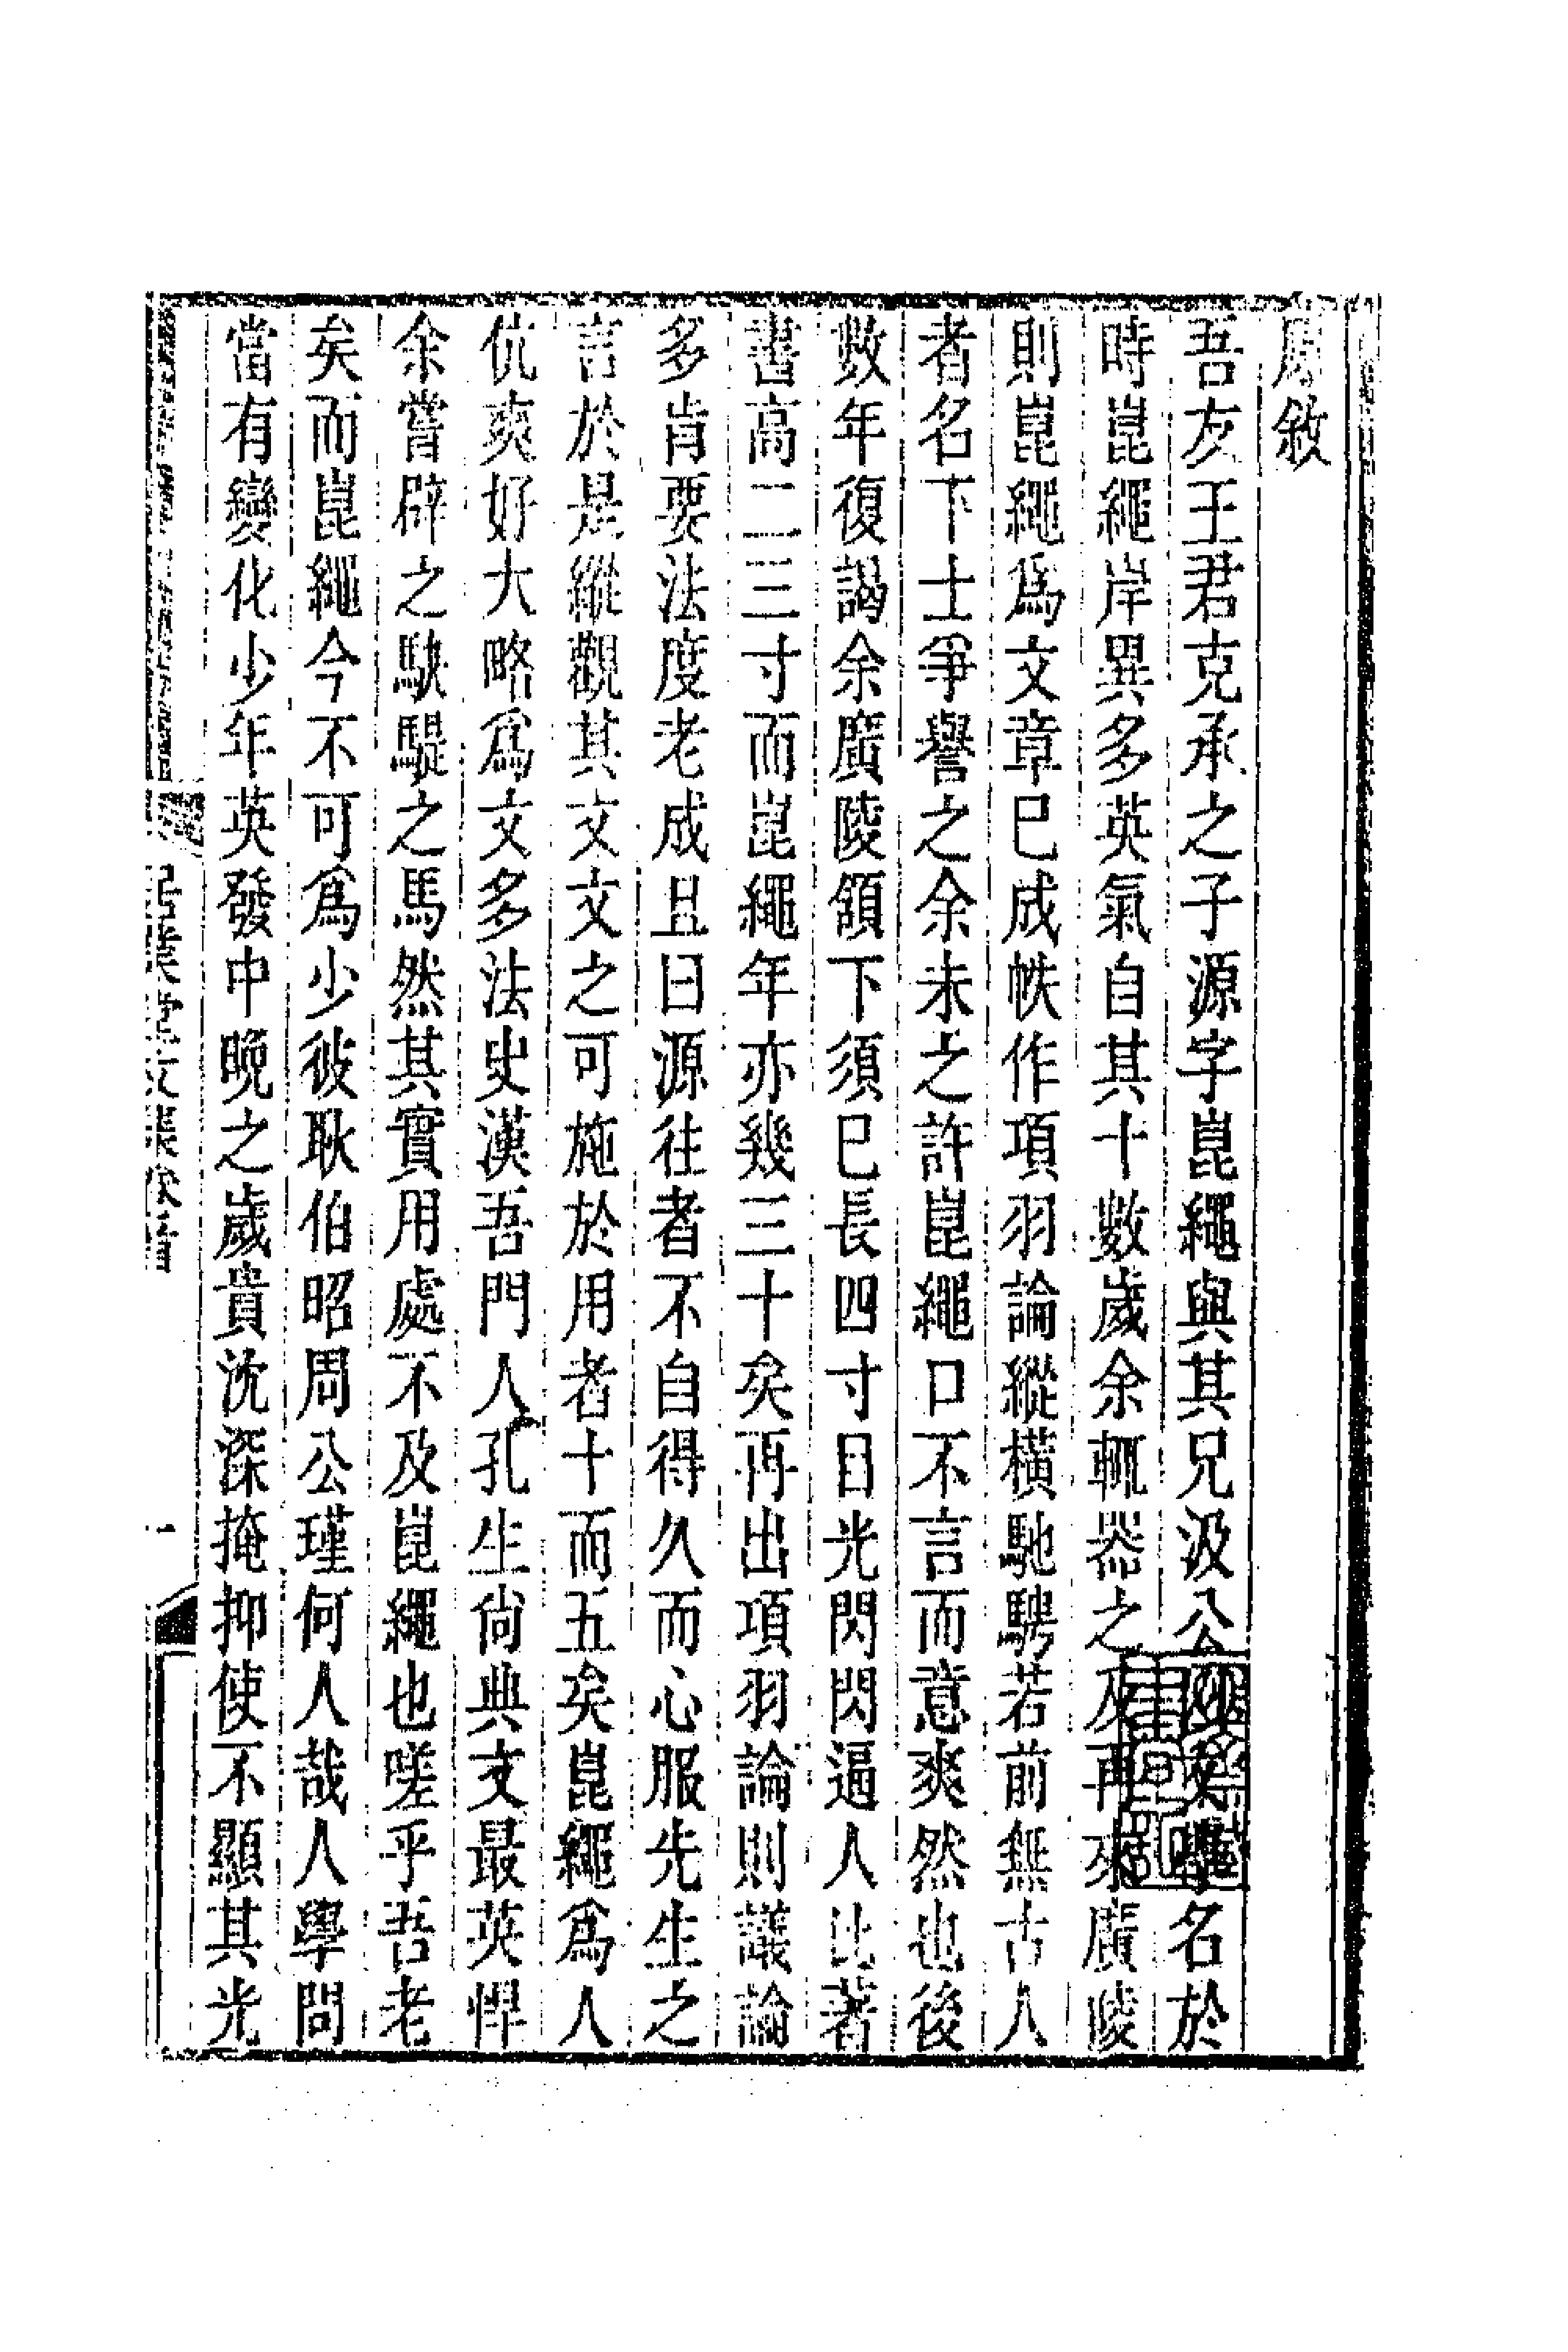 原敘
吾友王君克承之子源字崑繩與其兄汲公以文學名於
時崑繩岸異多英氣自其十數歲余輒器之及再來廣陵
則崑繩爲文章已成帙作項羽論縱橫馳騁若前無古人
者名下士爭譽之余未之許崑繩口不言而意爽然也後
數年復謁余廣陵頷下須已長四寸目光閃閃逼人比著
書高二三寸而崑繩年亦幾三十矣再出項羽論則議論
多肯要法度老成且曰源往者不自得久而心服先生之
言於是縱觀其文文之可施於用者十而五矣崑繩爲人
伉爽好大略爲文多法史漢吾門人孔生尙典文最英悍
余嘗辟之駃騠之馬然其實用處不及崑繩也嗟乎吾老
矣而崑繩今不可爲少彼耿伯昭周公瑾何人哉人學問
當有變化少年英發中晚之歲貴沈深掩抑使不顯其光
居業堂文集
一